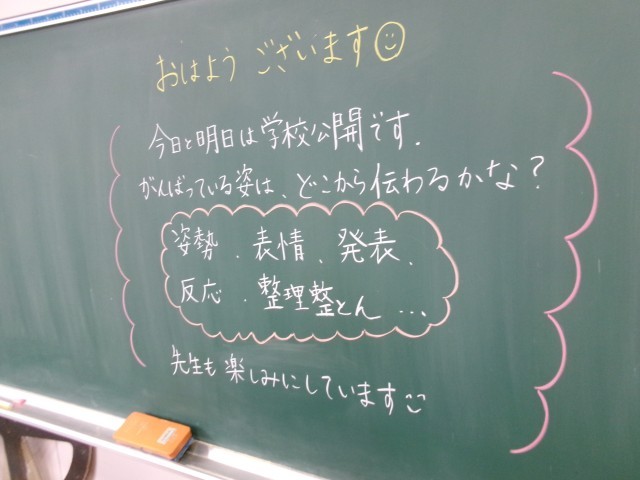 おはようございます
今日と明日は学校公開です.
がんばっている姿は、どこから伝わるかな?
姿勢、表情、発表、
反応、整理整とん…
先生も楽しみにしています